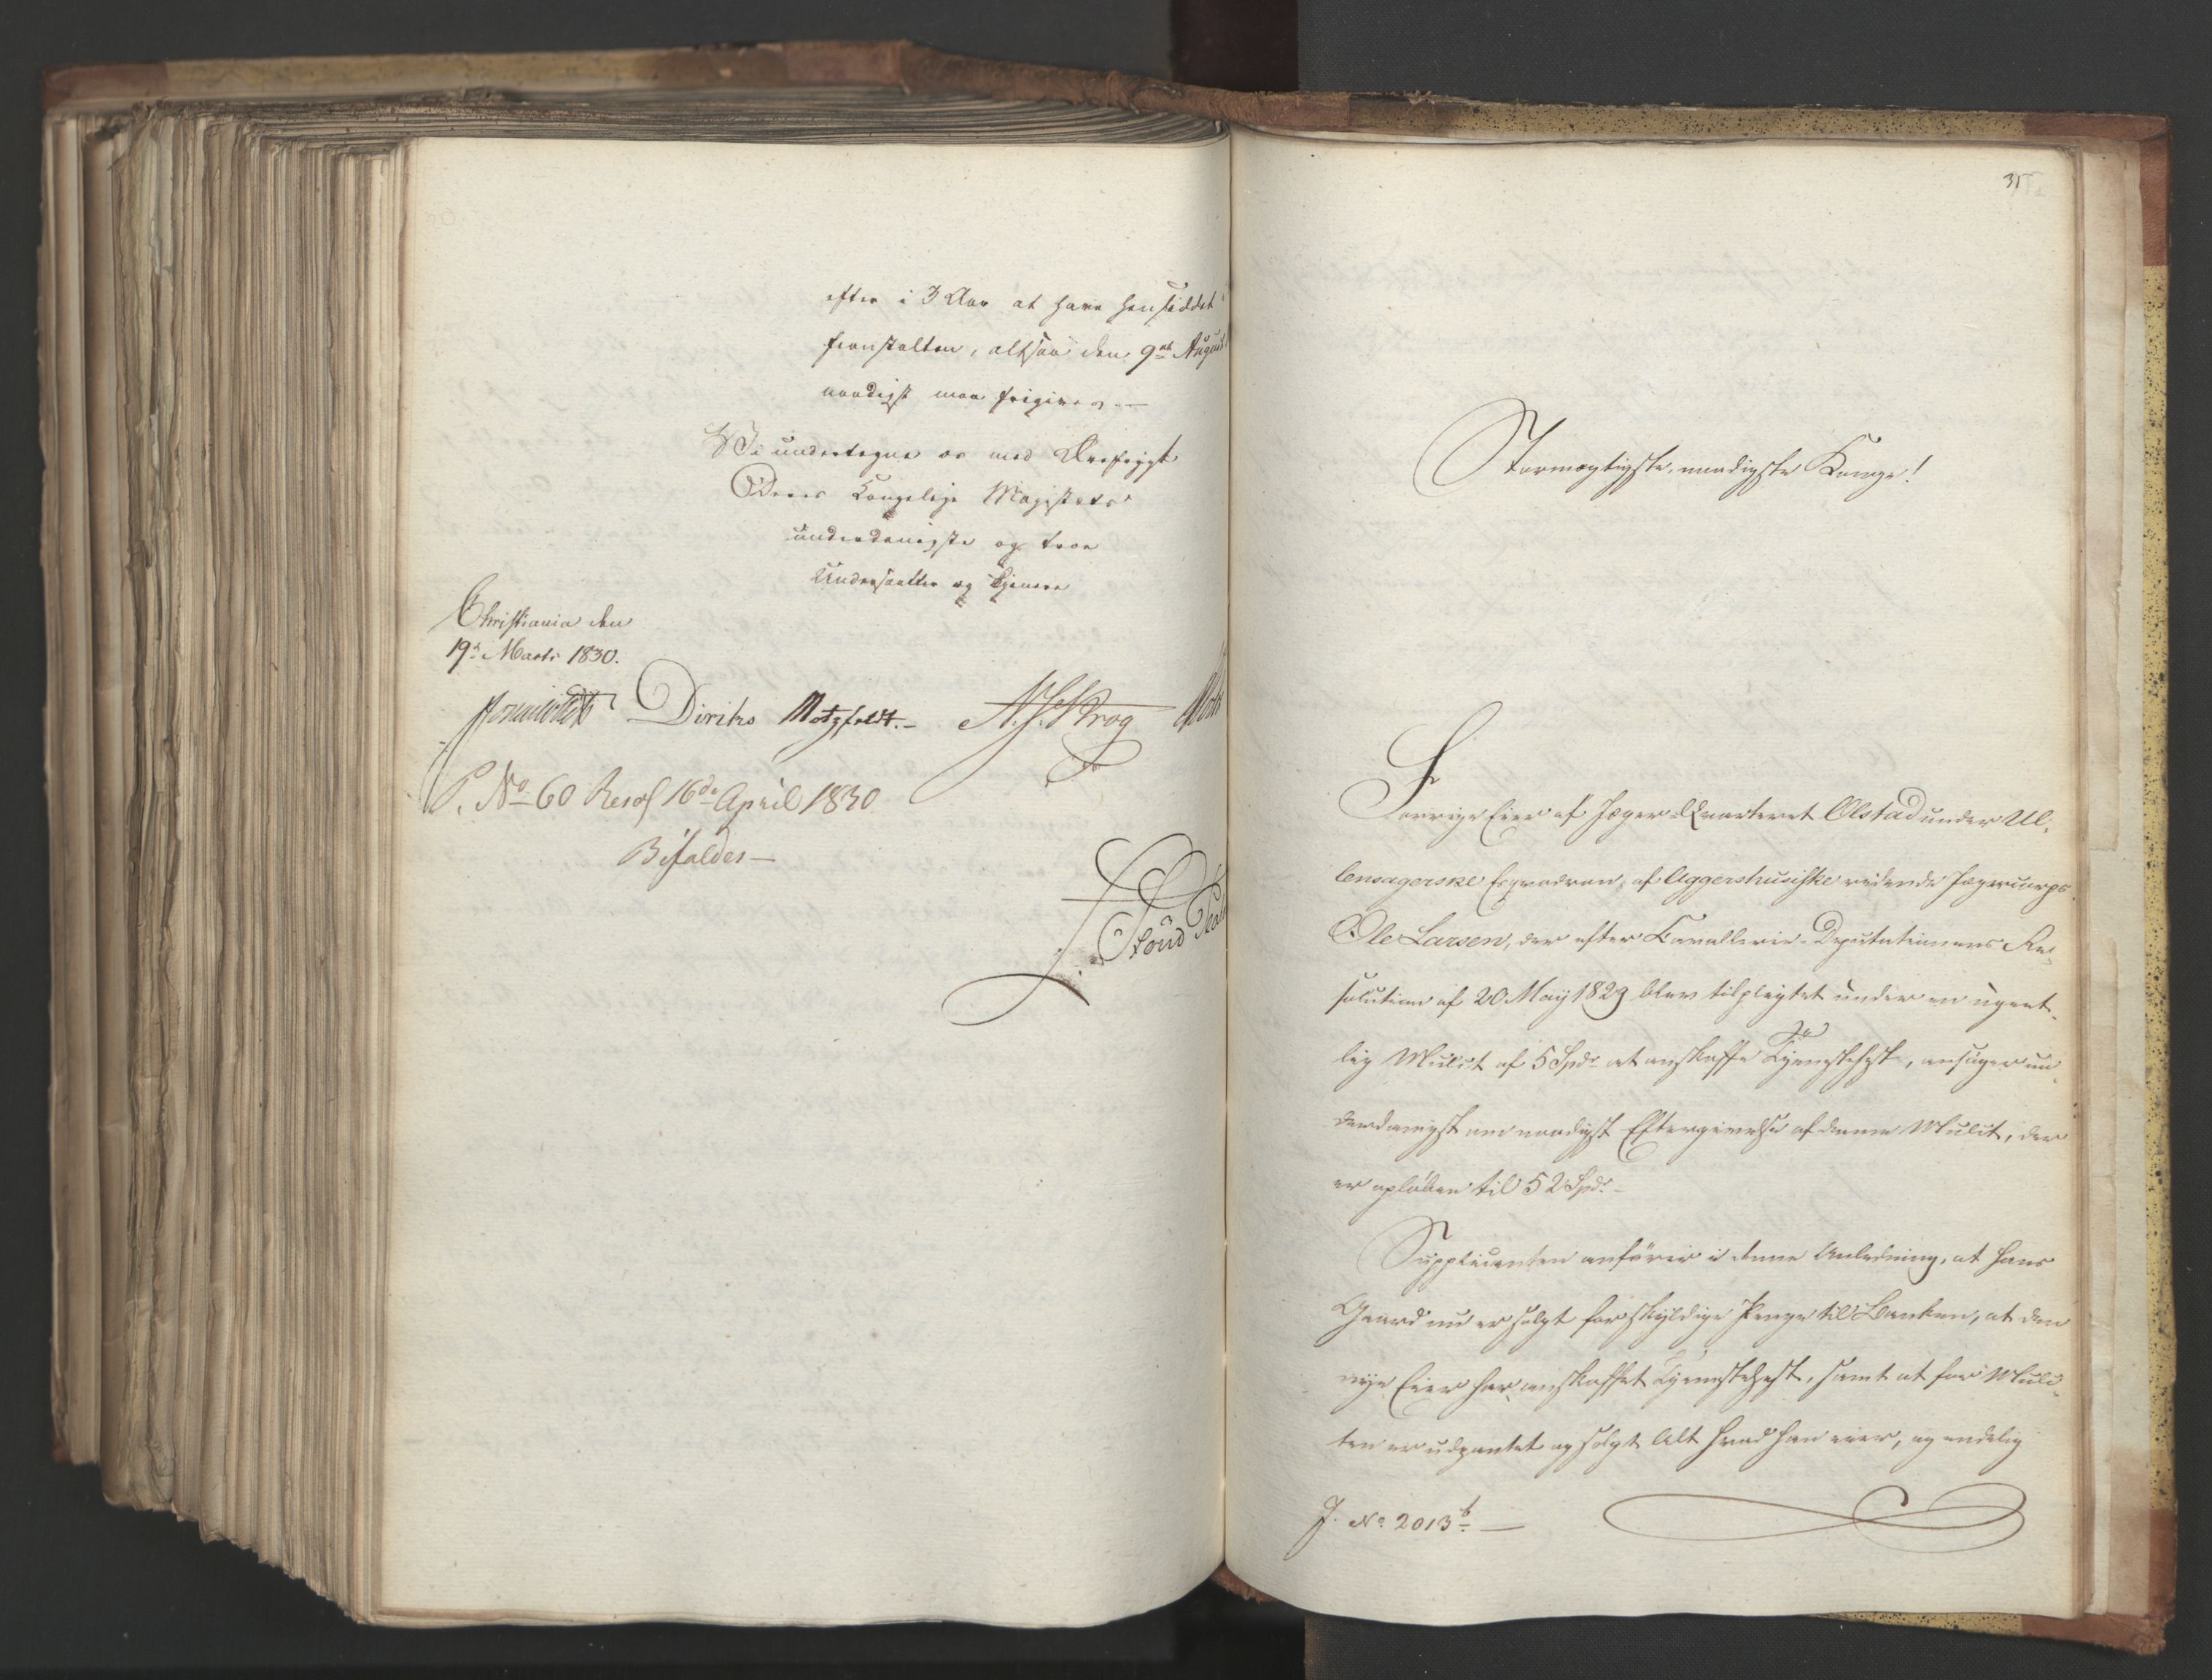 efter i 3 Aar at have hensiddet i
Anstalten, altsaa den 9de August
naadigst maa frigives. —
Vi undertegne os med Ærefrygt
Deres Kongelige Majestæts
underdanigste og troe
Undersaatter og Tjenere
Christiania den
19de Marts 1830.
Diriks Motzfeldt. — N. J. Krog
P. No 60 Resol 16de April 1830
Bifaldes —
35
Stormægtigste, naadigste Konge!
Forrige Eier af Jæger-Qvarteret Olstad under Ul-
lensagerske Esqvadron, af Aggershusiske ridende Jægercorps,
Ole Larsen, der efter Cavallerie-Deputationens Re-
solution af 20 May 1829 blev tilpligtet under en ugent-
lig Mulct af 5 Spd. at anskaffe Tjenestehest, ansøger un-
derdanigst om naadigst Eftergivelse af denne Mulct, der
er opløben til 52 Spd. —
Supplicanten anfører i denne Anledning, at hans
Gaard nu er solgt for skyldige Penge til Banken, at den
nye Eier har anskaffet Tjenestehest, samt at for Mulc-
ten er udpantet og solgt Alt hvad han eier, og endelig
J. No 2013 b. —